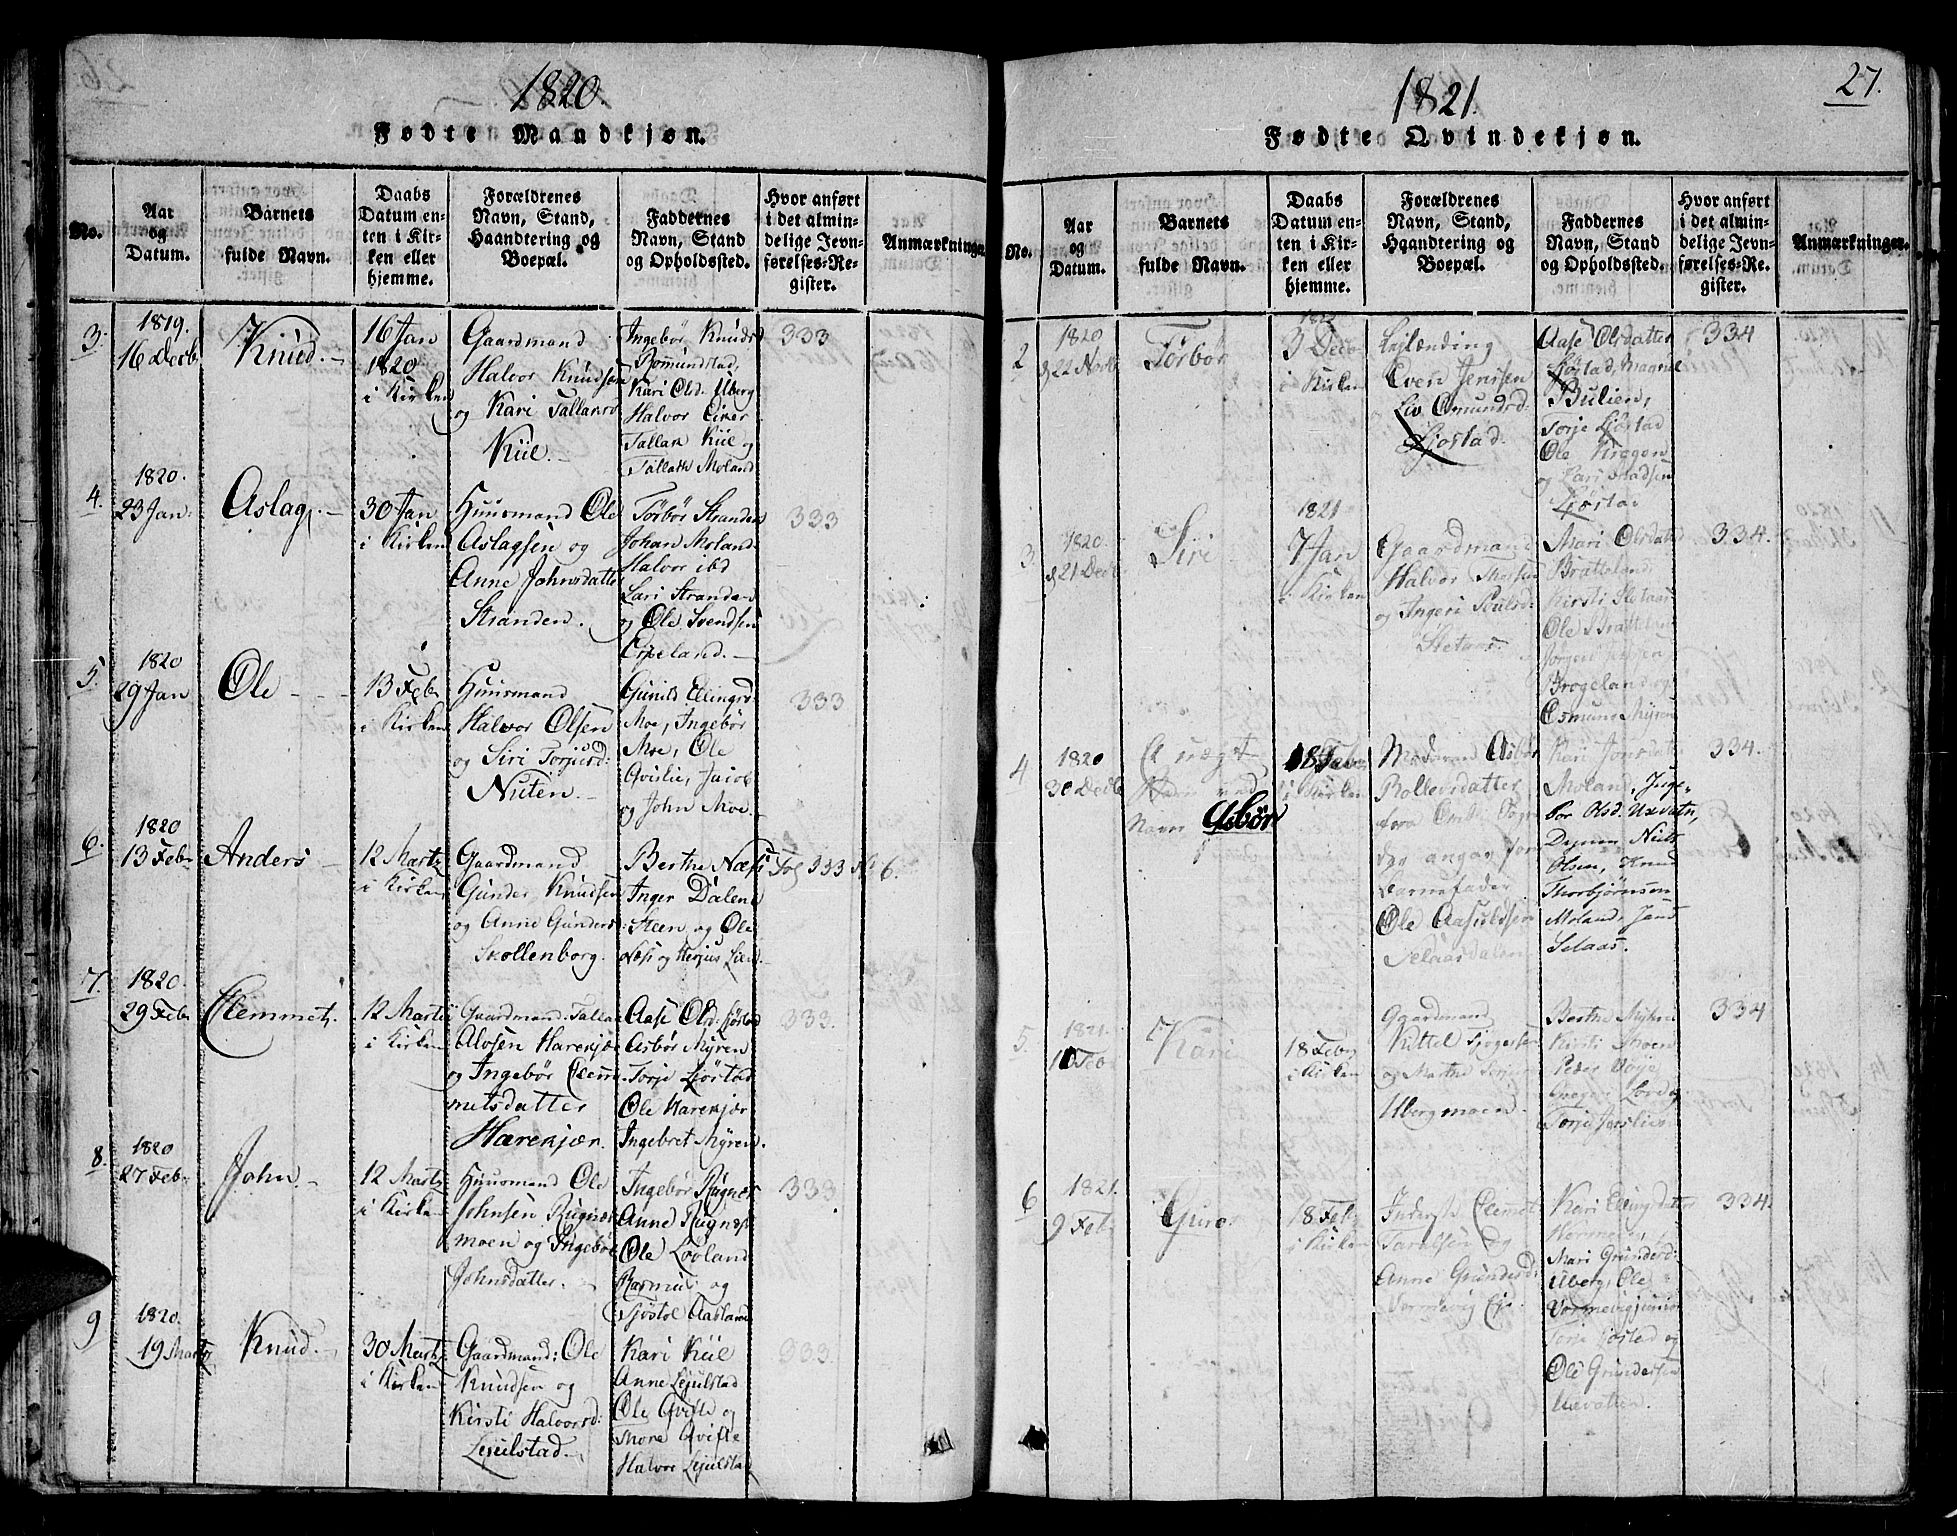 1820.
Fødte Mandkjøn.
No.
Aar
og
Datum.
Barnets
fulde Navn.
Daabs
Datum en-
ten i Kir-
ken eller
hjemme.
Forældrenes
Navn, Stand,
Haandtering og
Boepæl.
Faddernes
Navn, Stand
og Opholdssted.
Hvor anført
i det almin-
delige Jevn-
førelses-Re-
gister.
Anmærkninger
3.
1819.
16 Decb
Knud.
16 Jan
1820
i Kirken
Gaardmand
Halvor Knudsen
og Kari Tallaksd
Kiil.
Ingebør Knudsd
Romundstad,
Kari Old. Uberg
Halvor Eiker
Tallak Kiil og
Tallak Moland
333
4.
1820.
23 Jan:
Aslag.
30 Jan
i Kirken
Huusmand Ole
Aslagsen og
Anne Johnsdatter
Stranden.
Torbør Stranden
Johan Moland
Halvor ibd
Lars Stranden
og Ole Svendsen
Espeland.
333
5.
1820
29 Jan
Ole
13 Feb
i Kirken
Huusmand
Halvor Olsen
og Siri Torjusd:
Nuten.
Gunild Ellingsd:
Moe, Ingebør
Moe, Ole
Qvislie, Jacob
og John Moe.
333
6.
1820
13 Febr
Anders
12 Martz
i Kirken
Gaardmand
Gunder Knudsen
og Anne Gunders
Skollenborg.
Berthe Næs
Inger Dalene
Steen, og Ole
Næs og Herjus Lien
Fol 333 No 6.
7.
1820.
29 Feb
Clemmet.
12 Martz
i Kirken
Gaardmand Tallak
Alvsen Harekjær
og Ingebør Clem-
metsdatter
Harekjær.
Aase Olsd: Fjøstad
Asbør Myren
Torje Ljøstad
Ole Harekjær
Ingebret Myren.
333.
8.
1820
27 Feb
John.
12 Martz
i Kirken
Huusmand Ole
Johnsen Rugnæs
moen og Ingebør
Johnsdatter.
Ingebør Rugnæs
Anne Rugnæs
Ole Lovland
Rasmus og
Sjøstøl Aasland
333
9
1820.
19 Martz
Knud.
30 Martz
i Kirken
Gaardmand: Ole
Knudsen og
Kirsti Halvorsd:
Lejulstad.
Kari Kiil
Anne Lejulstad
Ole Qvifte og
Thore Qvifte
Halvor Lejulstad
333.
1821.
27.
Fødte Qvindekjøn.
No.
Aar
og
Datum.
Barnets
fulde Navn.
Daabs
Datum en-
ten i Kir-
ken eller
hjemme.
Forældrenes
Navn, Stand,
Haandtering og
Boepæl.
Faddernes
Navn, Stand
og Opholdssted.
Hvor anført
i det almin-
delige Jevn-
førelses-Re-
gister.
Anmærkninger.
2
1820
d 22 Novb
Torbør
3 Decb
i Kirken
Lejlænding
Even Jensen
Liv Omundsd:
Ljostad.
Aase Olsdatter
Ljøstad, Magnil
Bulien,
Torje Ljøstad
Ole
Ljøstad
334
3.
1820.
d 21 Decb
Siri
1821
7 Jan
i Kirken
Gaardmand
Halvor
og Ingeri
Stetaas
Mari Olsdatter
Bratteland,
Kirsti Stetaas
Ole Bratteland
Frogeland og
Osmund Myren
334.
4
1820
30 Decb
Navn
Asbør
18 Feb
i Kirken
Asbør
Rollevsdatter
fra
dag angav for
Barnefader
Ole Aasuldsen
Selaasdalen
Kari Jonsdatter
Moland, Inge-
bor Olsd. Uævatn,
Degnen Niels
Olsen, Knud
Thorbjørnsen
Moland, Jens
Selaas.
334.
5.
1821.
10 Feb
Kari
18 Feb
i Kirken
Gaardmand
Kittel
og Marthe
Ubergsmoen.
Berthe Myhren
Kirsti Moen
Peder
334
6
1821.
9 Feb
Guro
18 Feb
i Kirken
Inderst Clemet
Taralsen og
Anne Gundersd:
Vormevig Eje.
Kari Ellingsdatter
Mari Gundersd:
Uberg, Ole
Vormevig junior
Torje Ljøstad og
Ole Gundersen
Uævatten.
334.